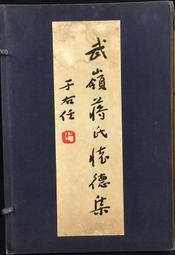 武嶺蔣氏懷德集
于右任